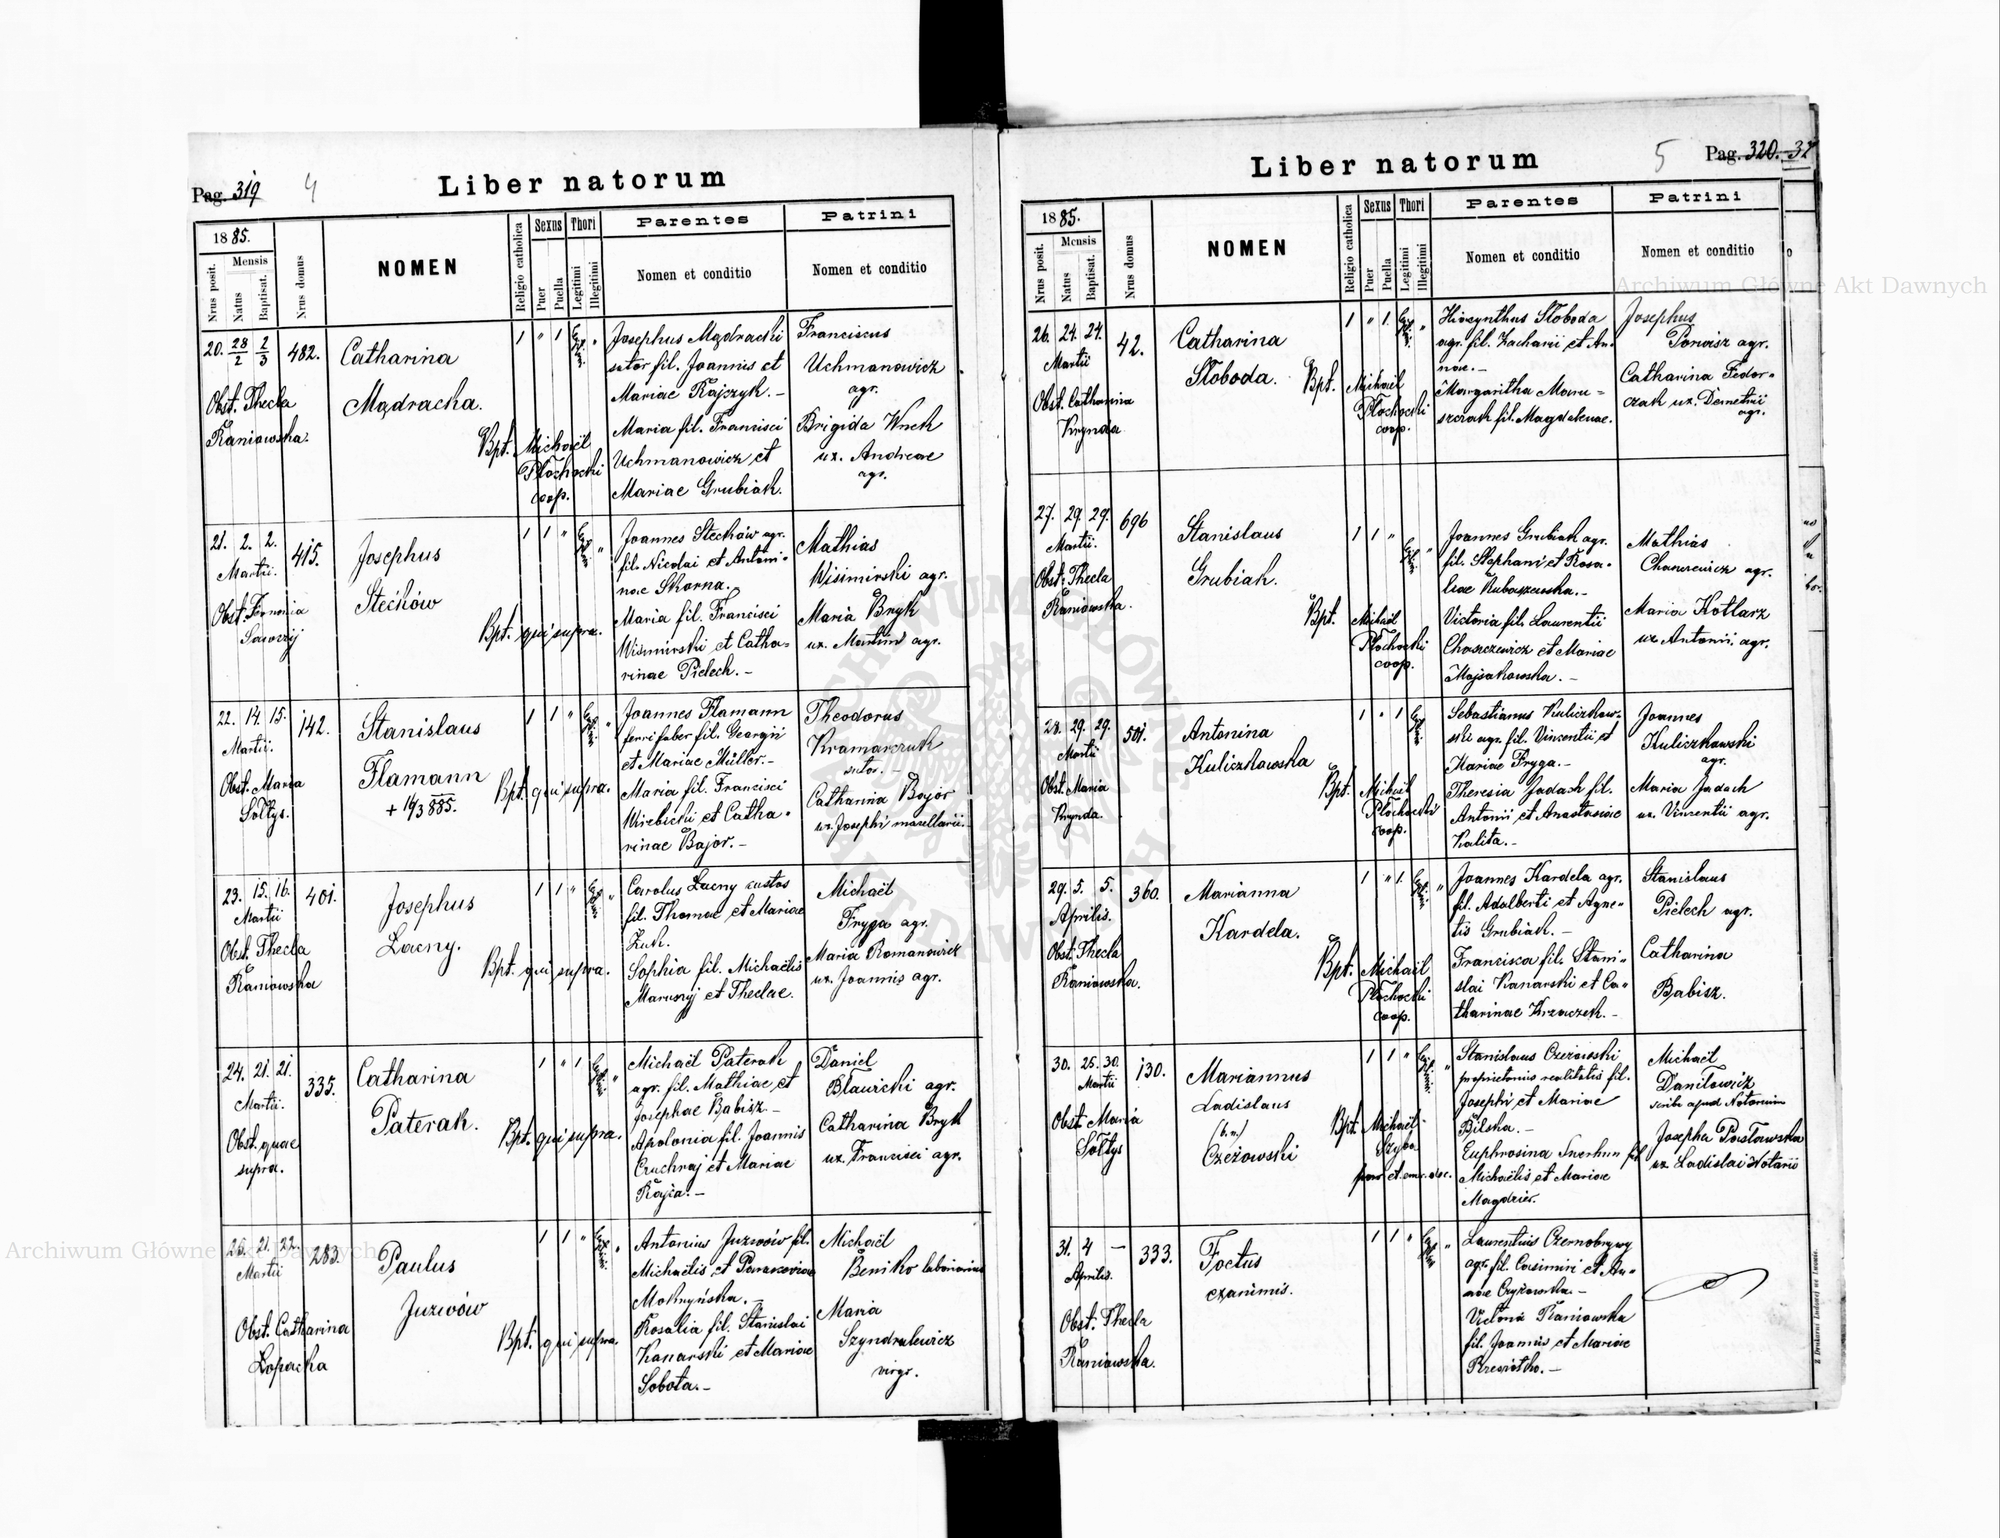 Pag. 319
4
Liber natorum
1885.
Nrus posit.
Mensis
Natus
Baptisat.
Nrus domus
NOMEN
Religio catholica
Sexus
Puer
Puella
Thori
Legitimi
Illegitimi
Parentes
Nomen et conditio
Patrini
Nomen et conditio
20. 28/2 2/3 482.
Obst. Thecla
Raniowska.
Catharina
Mądracka.
1 " 1 "
Bpt. Michaël
Płochocki
coop.
Josephus Mądracki
sutor fil. Joannis et
Mariae Rajczyk. -
Maria fil. Francisci
Uchmanowicz et
Mariae Grubiak.
Franciscus
Uchmanowicz
agr.
Brigida Wnek
ux. Andreae
agr.
21. 2. 2. 415.
Martii.
Obst.
Josephus
Stećków
1 1 " "
Bpt. qui supra.
Joannes Stecków agr.
fil. Nicolai et Antoni=
nae Skorna. -
Maria fil. Francisci
Wiśimirski et Catha=
rinae Pielech. -
Mathias
Wisimirski agr.
Maria Bryk
ux. Martini agr.
22. 14. 15. 142.
Martii.
Obst. Maria
Sołtys.
Stanislaus
Flamann
+ 16/3 885.
1 1 " "
Bpt. qui supra.
Joannes Flamann
ferri faber fil. Georgii
et Mariae Müller. -
Maria fil. Francisci
Wirebicki et Catha=
rinae Bajor. -
Theodorus
Kramarczuk
sutor. -
Catharina Bajor
ux. Josephi macellarii. -
23. 15. 16. 401.
Martii
Obst. Thecla
Raniowska
Josephus
Lacny.
1 1 " "
Bpt. qui supra.
Carolus Lacny custos
fil. Thomae et Mariae
Żuk.
Sophia fil. Michaëlis
Marusyj et Theclae.
Michaël
Fryga agr.
Maria Romanowicz
ux. Joannis agr.
24. 21. 21. 335.
Martii.
Obst. quae
supra.
Catharina
Paterak.
1 " 1 "
Bpt. qui supra.
Michaël Paterak
agr. fil. Mathiae et
Josephae Babisz -
Apolonia fil. Joannis
Czuchraj et Mariae
Rajca. -
Daniel
Bławicki agr.
Catharina Bryk
ux. Francisci agr.
25. 21. 22. 283.
Martii
Obst. Catharina
Łopacka
Paulus
Juzwów
1 1 " "
Bpt. qui supra.
Antonius Juzwów fil.
Michaëlis et Parascevae
Mokrzyńska. -
Rosalia fil. Stanislai
Kanarski et Mariae
Sobota. -
Michaël
Beniko laborarius
Maria
Szyndralewicz
virgo.
Liber natorum
5
Pag. 320. 32
1885.
Nrus posit.
Mensis
Natus
Baptisat.
Nrus domus
NOMEN
Religio catholica
Sexus
Puer
Puella
Thori
Legitimi
Illegitimi
Parentes
Nomen et conditio
Patrini
Nomen et conditio
26. 24. 24. 42.
Martii
Obst. Catharina
Krynda
Catharina
Słoboda.
1 " 1. "
Bpt. Michaël
Płochocki
coop.
Hiacynthus Słoboda
agr. fil. Zacharii et An=
nae. -
Margaritha Maru=
szczak fil. Magdalenae.
Josephus
Poraisz agr.
Catharina Fedor=
czak ux. Demetrii
agr.
27. 29. 29. 696
Martii.
Obst. Thecla
Raniowska.
Stanislaus
Grubiak.
1 1 " "
Bpt. Michaël
Płochocki
coop.
Joannes Grubiak agr.
fil. Stephani et Rosa=
liae Kubaszewska. -
Victoria fil. Laurentii
Chaszczewicz et Mariae
Majsakowska. -
Mathias
agr.
Maria Kotlarz
ux. Antonii agr.
28. 29. 29. 501.
Martii
Obst. Maria
Krynda.
Antonina
Kuliczkowska
1 " 1
Bpt. Michaël
Płochocki
coop.
Sebastianus Kuliczkow=
ski agr. fil. Vincentii et
Mariae Fryga. -
Theresia Jadach fil.
Antonii et Anastasiae
Kalita. -
Joannes
Kuliczkowski
agr.
Maria Jadach
ux. Vincentii agr.
29. 5. 5. 360.
Aprilis.
Obst. Thecla
Raniowska.
Marianna
Kardela.
1 " 1. "
Bpt. Michaël
Płochocki
coop.
Joannes Kardela agr.
fil. Adalberti et Agne=
tis Grubiak. -
Francisca fil. Stani=
slai Kanarski et Ca=
tharinae Krzaczek. -
Stanislaus
Pielech agr.
Catharina
Babisz.
30. 25. 30. 130.
Martii
Obst. Maria
Sołtys
Mariannus
Ladislaus
(b.n.)
Czeżowski
1 1 " "
Bpt. Michaël
Szyba
Stanislaus Czeżowski
proprietarius realitatis fil.
Josephi et Mariae
Bilska. -
Euphrosina fil.
Michaëlis et Mariae
Magdzier.
Michaël
Daniłowicz
scriba apud Notarium
Josepha Pasławska
ux. Ladislai Notarii
31. 4 — 333.
Aprilis.
Obst. Thecla
Raniowska.
Foetus
exanimis.
1 1 " "
Laurentius Czernobrywy
agr. fil. Casimiri et An=
nae Czyżowska. -
Victoria Raniowska
fil. Joannis et Mariae
Z Drukarni Ludowej we Lwowie.
Archiwum Główne Akt Dawnych
Archiwum Główne Akt Dawnych
ARCHIWUM GŁÓWNE AKT DAWNYCH